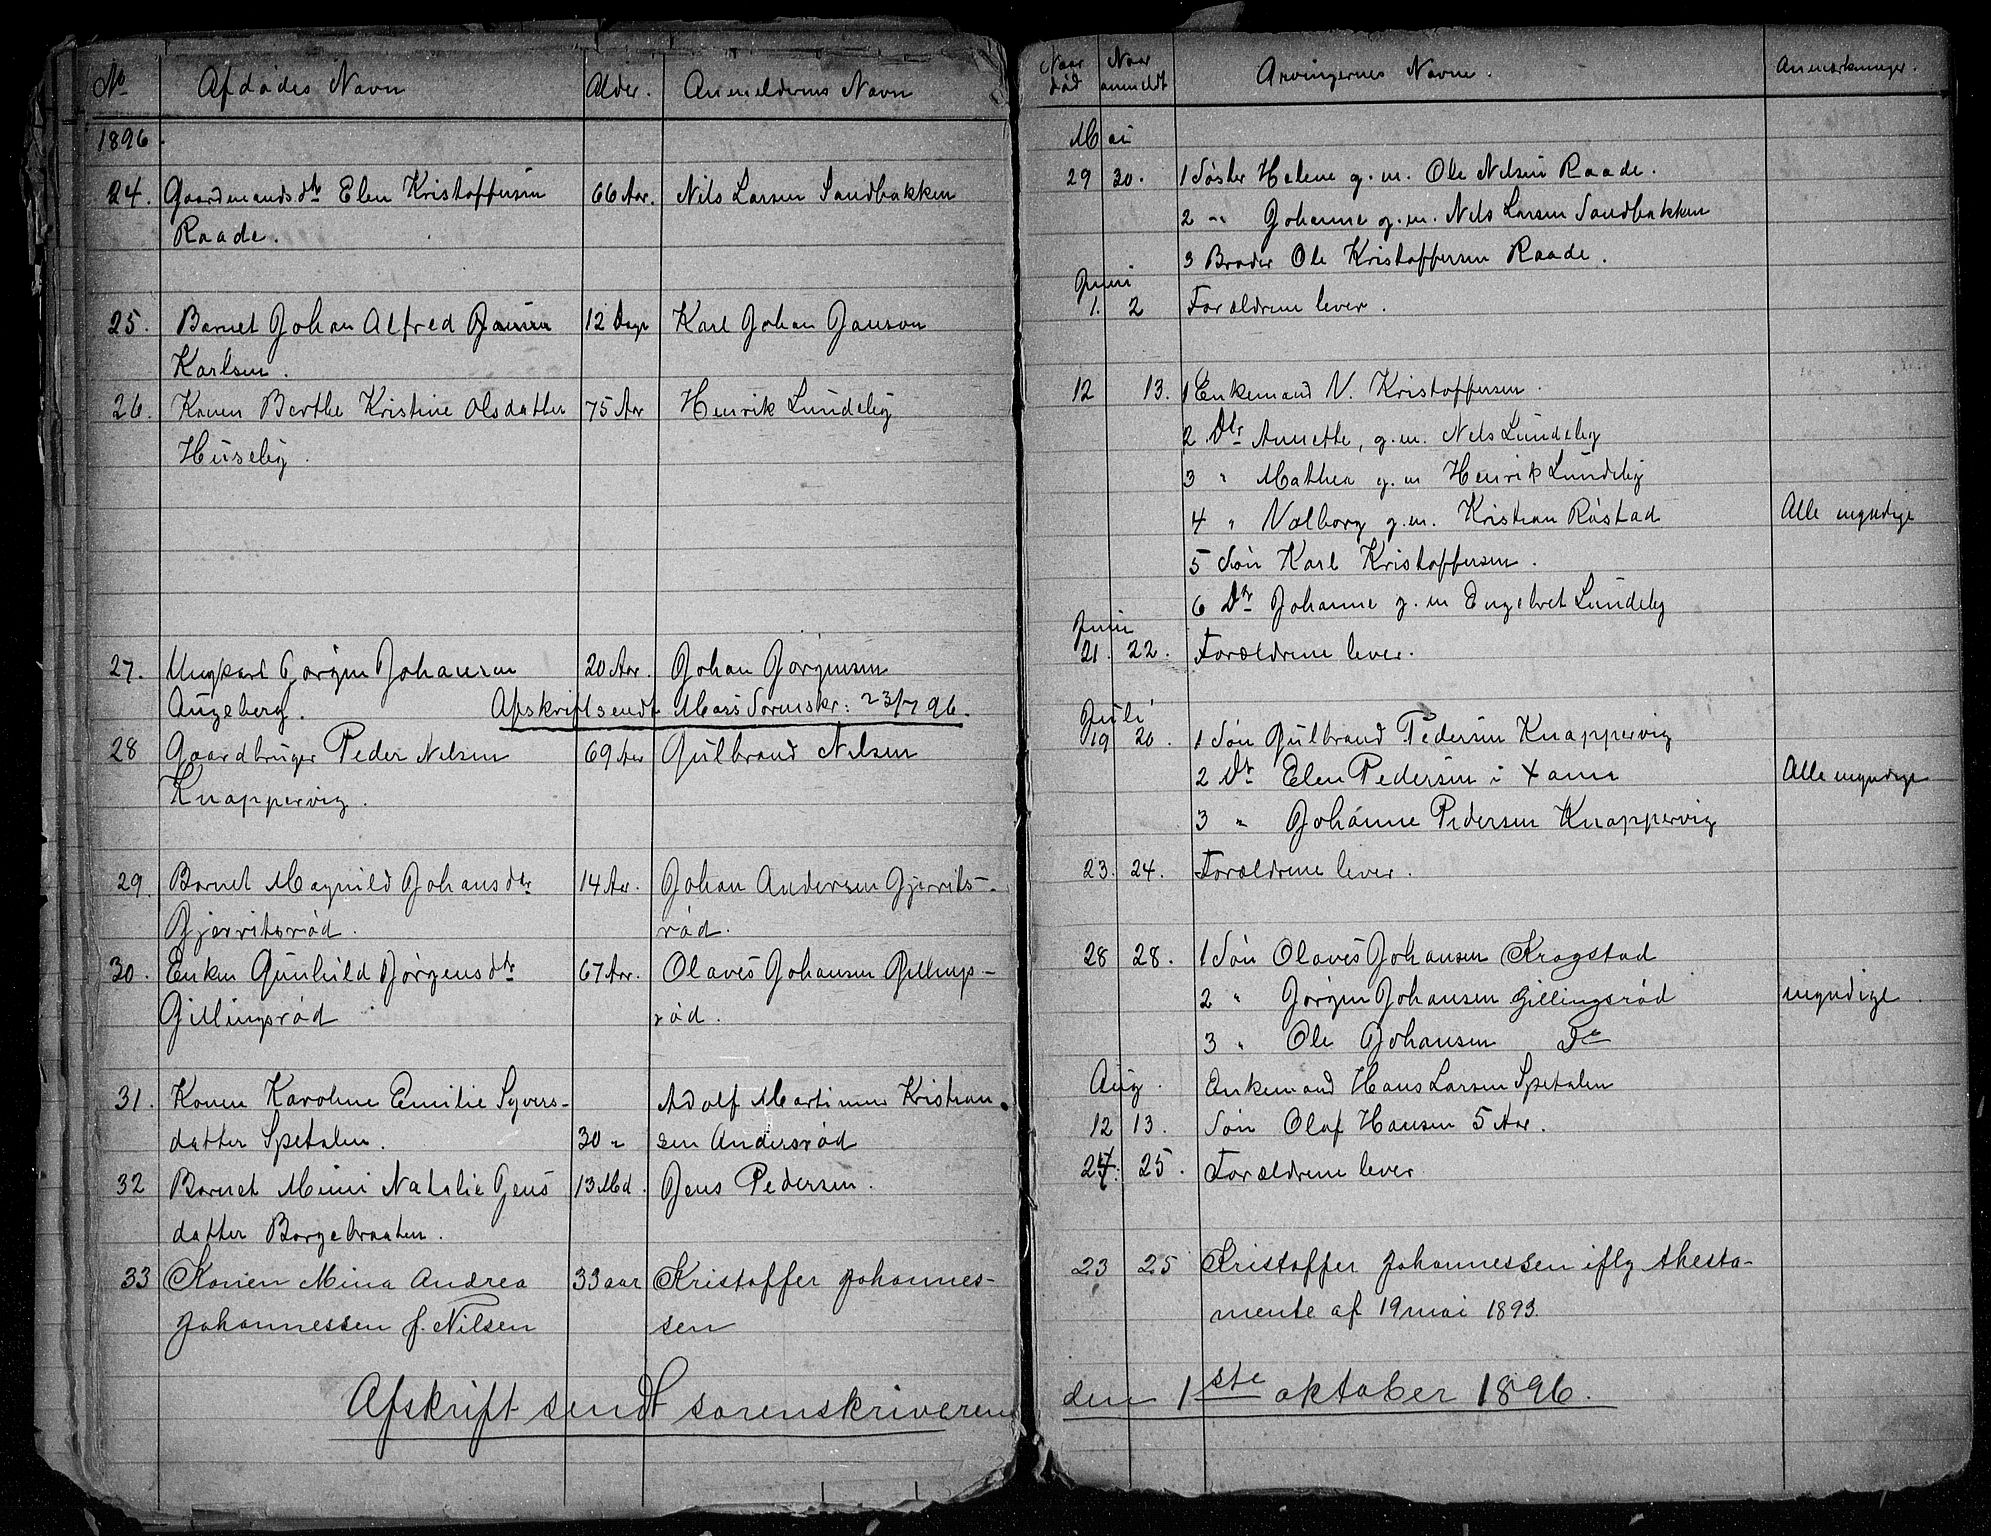 No Afdødes Navn Alder. Anmelderens Navn
1896.
24. Gaardmandsdtr Elen Kristoffersen 66 Aar. Nils Larsen Sandbakken
Raade.
25. Barnet Johan Alfred 12 Dage Karl Johan Janson
Karlsen.
26. Konen Berthe Kristine Olsdatter 75 Aar Henrik Lundeby
Huseby.
27. Ungkarl Jørgen Johansen 20 Aar. Johan Jørgensen
Augeberg. Afskrift sendt Moss Sorenskr: 23/7 96.
28 Gaardbruger Peder Nilsen 69 Aar Gulbrand Nilsen
Knappervig.
29. Barnet Magnild Johansdtr 14 Aar. Johan Andersen Gjerrits-
Gjerritsrød. rød.
30. Enken Gunhild Jørgensdtr 67 Aar. Olaves Johansen Gillings-
Gillingsrød rød.
31. Konen Karoline Emilie Syvers- Adolf Martinius Kristian
datter Spetalen. 30 " sen Andersrød
32 Barnet Mimi Natalie Jens 13 Md. Jens Pedersen.
datter Borgebraaten.
33 Konen Mina Andrea 33 aar Kristoffer Johannes-
Johannessen f. Nilsen sen
Afskrift sendt sorenskriveren
Naar død Naar anmeldt Arvingernes Navne. Anmærkninger.
Mai
29 30. 1 Søster Helene g. m. Ole Nilsen Raade.
2 " Johanne g. m. Nils Larsen Sandbakken
3 Broder Ole Kristoffersen Raade.
Juni
1. 2 Forældrene lever.
12 13. 1 Enkemand N. Kristoffersen
2 Dtr Annette, g. m. Nils Lundeby
3 " Mathea g. m Henrik Lundeby
4 " Valborg g. m. Kristian Røstad Alle myndige
5 Søn Karl Kristoffersen.
6 Dtr Johanne g. m Engebret Lundeby
Juni
21. 22. Forældrene lever.
Juli
19 20. 1 Søn Gulbrand Pedersen Knappervig
2 Dtr Elen Pedersen i Xania Alle myndige
3 " Johanne Pedersen Knappervig
23. 24. Forældrene lever.
28 28. 1 Søn Olaves Johansen Krogstad
2 " Jørgen Johansen Gillingsrød myndige.
3 " Ole Johansen Do
Aug. Enkemand Hans Larsen Spetalen
12 13. Søn Olaf Hansen 5 Aar.
24. 25. Forældrene lever
23 25 Kristoffer Johannessen iflg thesta-
mente af 19 mai 1893.
den 1ste oktober 1896.